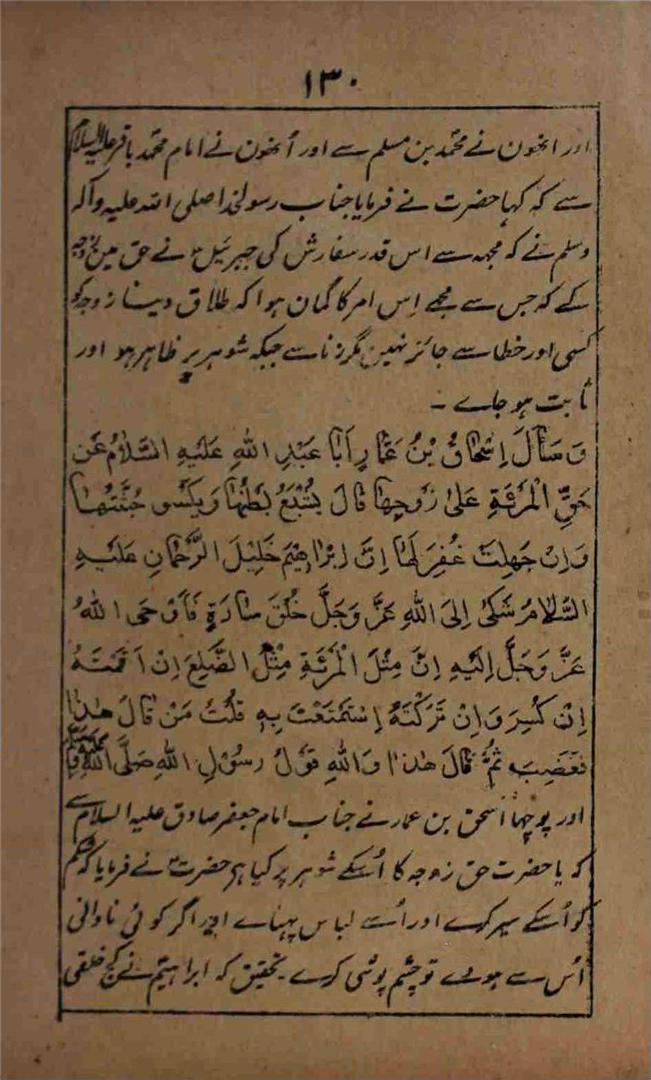 ۱۳۰
اور انھون نے محمّد بن مسلم سے اور اُنھون نے امام محمّد باقر علیہ السلام
سے کہ کہا حضرت نے فرمایا جناب رسولخدا صلی اللہ علیہ وآلہ
وسلم نے کہ مجھہ سے اس قدر سفارش کی جبرئیلؑ نے حق مین زوجہ
کے کہ جس سے مجھے اِس امر کا گمان ہوا کہ طلاق دینا زوجہ کو
کسی اور خطا سے جائز نہین مگر زنا سے جبکہ شوہر پر ظاہر ہو اور
ثابت ہو جاے ۔
وَسَأَلَ اِسْحَاقُ بْنُ عَمَّارٍ اَبَا عَبْدِ اللهِ عَلَيْهِ السَّلَامُ عَنْ
حَقِّ الْمَرْئَةِ عَلٰى زَوْجِهَا قَالَ يُشْبَعُ بَطْنُهَا وَيَكْسُو جُثَّتَهَا
وَاِنْ جَهِلَتْ غُفِرَ لَهَا اِنَّ اِبْرَاهِيْمَ خَلِيْلَ الرَّحْمَانِ عَلَيْهِ
السَّلَامُ شَكٰى اِلَى اللهِ عَزَّ وَجَلَّ خُلْقَ سَارَةٍ فَاَوْحَى اللهُ
عَزَّ وَجَلَّ اِلَيْهِ اِنَّ مِثْلَ الْمَرْئَةِ مِثْلُ الضِّلْعِ اِنْ اَقَمْتَهُ
اِنْ كَسِرَ وَاِنْ تَرَكْتَهُ اِسْتَمْتَعْتَ بِهِ قُلْتُ مَنْ قَالَ هٰذَا
فَغَضِبَ ثُمَّ قَالَ هٰذَا وَاللهِ قَوْلُ رَسُوْلِ اللهِ صَلَّى اللهُ
اور پوچھا اسحٰق بن عمار نے جناب امام جعفر صادق علیہ السلام سے
کہ یا حضرت حق زوجہ کا اُسکے شوہر پر کیا ہے حضرتؑ نے فرمایا کہ شکم
کو اُسکے سیر کرے اور اُسے لباس پہناے اور اگر کوئی نادانی
اُس سے ہووے تو چشم پوشی کرے بتحقیق کہ ابراہیمؑ نے کج خلقی